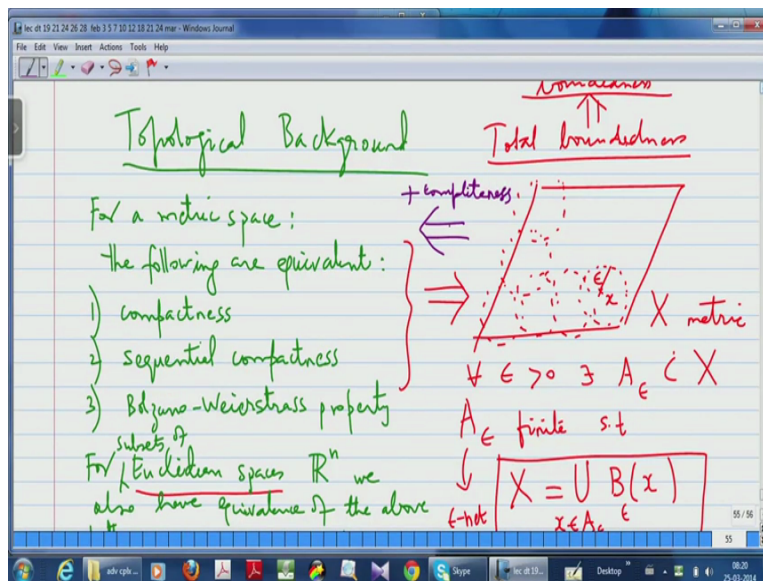 lec dt 19 21 24 26 28 feb 3 5 7 10 12 18 21 24 mar - Windows Journal
File Edit View Insert Actions Tools Help
Topological Background
For a metric space:
the following are equivalent:
1) compactness
2) sequential compactness
3) Bolzano-Weierstrass property
subsets of
For Euclidean spaces ℝⁿ we
also have equivalence of the above
boundedness
⇑
Total boundedness
+ completeness
⇐
⇒
ϵ
x
X metric
∀ ϵ > 0 ∃ A_ϵ ⊂ X
A_ϵ finite s.t
↓
ϵ-net
X = ∪ B_ϵ(x)
x∈A_ϵ
55 / 56
55
adv cplx ...
Skype
lec dt 19...
Desktop
08:20
25-03-2014